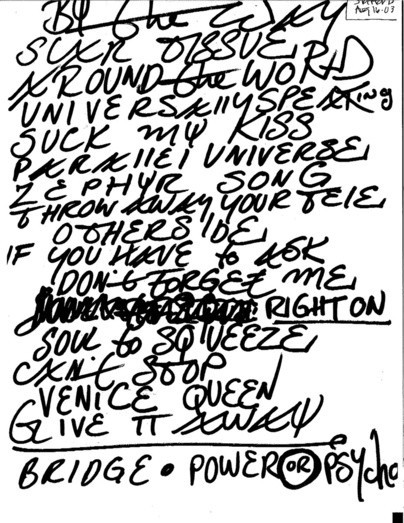 Aug 16-03
BY the WAY
SCAR TISSUE
AROUND the WORLD
UNIVERSALLY SPEAKING
SUCK MY KISS
PARALLEL UNIVERSE
ZEPHYR SONG
THROW AWAY YOUR TELE
OTHERSIDE
IF YOU HAVE to ASK
DON'T FORGET ME
RIGHT ON
SOUL to SQUEEZE
CAN'T STOP
VENICE QUEEN
GIVE IT AWAY
BRIDGE • POWER OR PSYcho